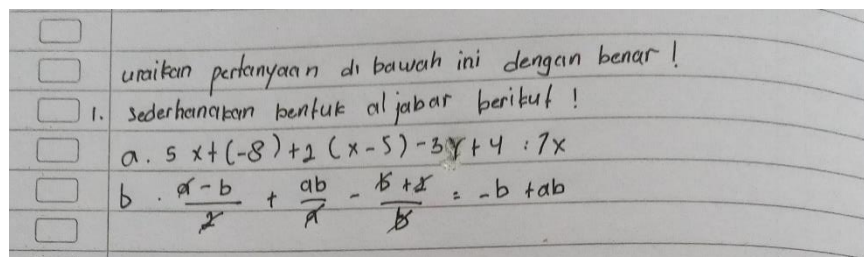 uraikan pertanyaan di bawah ini dengan benar !
1. sederhanakan bentuk aljabar berikut !
a. 5x+(-8)+2(x-5)-3y+4:7x
b. a-b/2 + ab/a - b+2/b = -b+ab